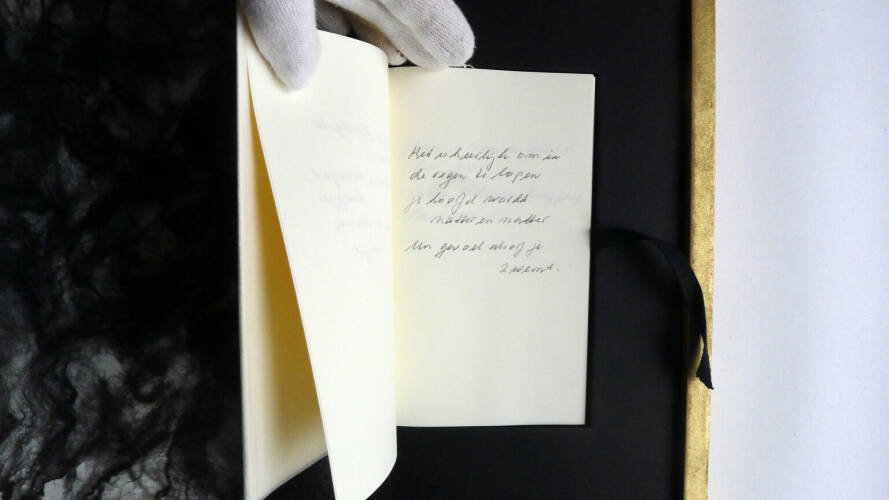 Het is heerlijk om in
de regen te lopen
je hoofd wordt
natter en natter
een gevoel alsof je
zwemt.